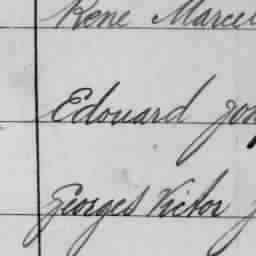 René Marcel
Edouard
Georges Victor